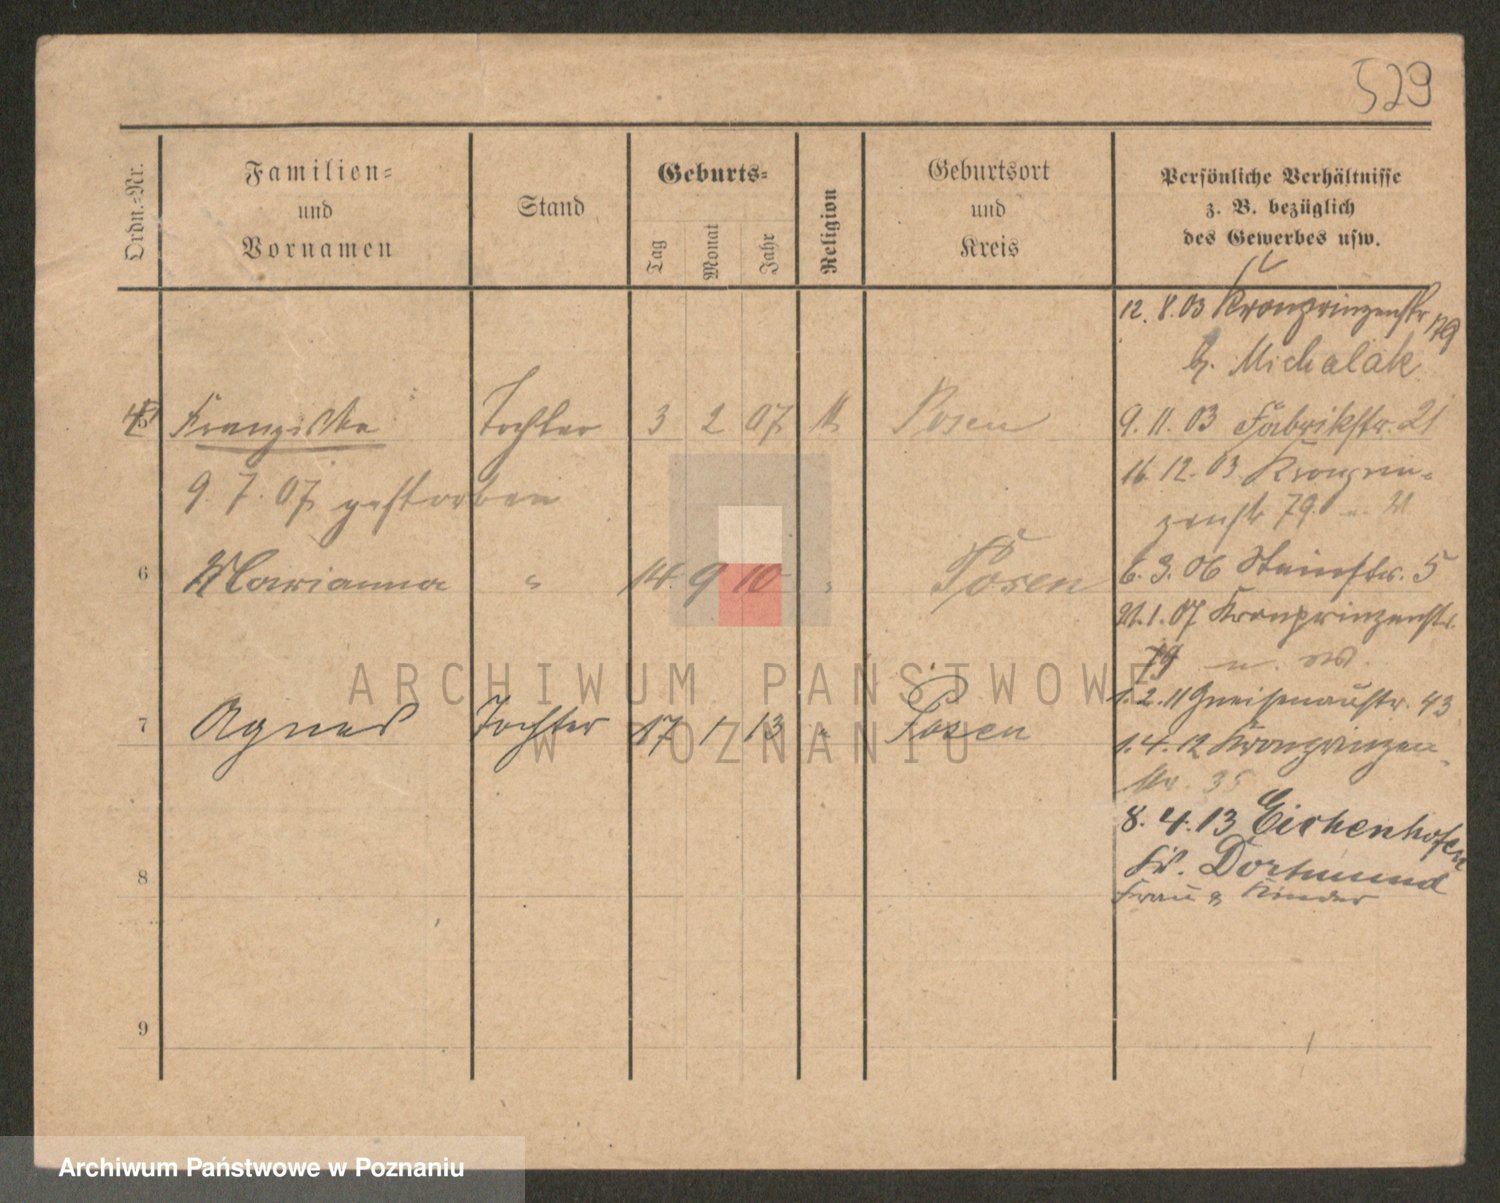 529
Ordn.-Nr.
Familien-
und
Vornamen
Stand
Geburts-
Tag
Monat
Jahr
Religion
Geburtsort
und
Kreis
Persönliche Verhältnisse
z. B. bezüglich
des Gewerbes usw.
12. 8. 03 Kronprinzenstr 79
b. Michalak
5 Franziska Tochter 3 2 07 Posen
9. 11. 03 Fabrikstr. 21
9. 7. 07 gestorben
16. 12. 03 Kronprin-
zenstr 79
6 Marianna " 14. 9 10 " Posen
6. 3. 06 Steinstr. 5
21. 1. 07 Kronprinzenstr.
79
7 Agnes Tochter 17 1 13 " Posen
1. 2. 11 Gneisenaustr. 43
1. 4. 12 Kronprinzen-
str. 35
8. 4. 13 Eichenhofen
Dortmund
Frau & Kinder
8
9
ARCHIWUM PAŃSTWOWE
W POZNANIU
Archiwum Państwowe w Poznaniu